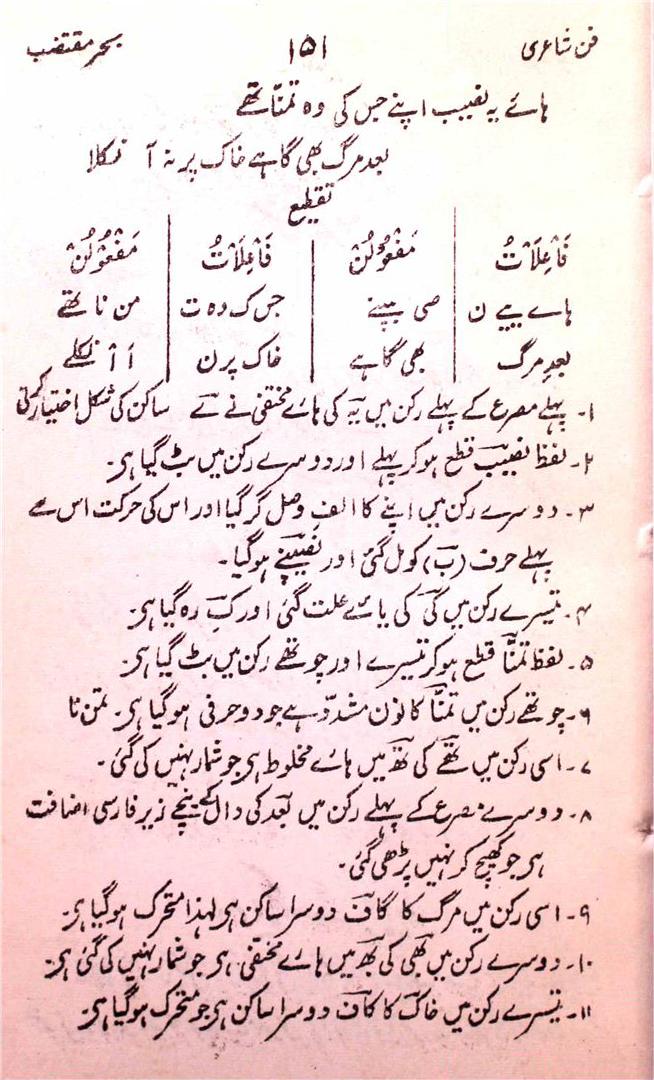 فن شاعری ۱۵۱ بحر مقتضب
ہائے یہ نصیب اپنے جس کی وہ تمنّا تھے
بعد مرگ بھی گاہے خاک پر نہ آ نکلا
تقطیع
فَاْعِلَاْتُ مَفْعُوْلُنْ فَاْعِلَاْتُ مَفْعُوْلُنْ
ہاے یے ن صی بپنے جس ک وہ ت من نا تھے
بعدِ مرگ بھی گاہے خاک پر ن اَ اْ نکلے
۱۔ پہلے مصرع کے پہلے رکن میں یہ کی ہائے مختفی نے ے ساکن کی شکل اختیار کرلی
۲۔ لفظ نصیب قطع ہو کر پہلے اور دوسرے رکن میں بٹ گیا ہی۔
۳۔ دوسرے رکن میں اپنے کا الف وصل گر گیا اور اس کی حرکت اس سے
پہلے حرف (ب) کو مل گئی اور نصیبپنے ہو گیا۔
۴۔ تیسرے رکن میں کی کی یائے علت گئی اور ک رہ گیا ہی۔
۵۔ لفظ تمنّا قطع ہو کر تیسرے اور چوتھے رکن میں بٹ گیا ہی۔
۶۔ چوتھے رکن میں تمنّا کا نون مشدّد ہے جو دو حرفی ہو گیا ہی۔ تمن نا
۷۔ اسی رکن میں تھے کی تھ میں ہائے مخلوط ہی جو شمار نہیں کی گئی۔
۸۔ دوسرے مصرع کے پہلے رکن میں بعد کی دال کے نیچے زیر فارسی اضافت
ہی جو کھینچ کر نہیں پڑھی گئی۔
۹۔ اسی رکن میں مرگ کا گاف دوسرا ساکن ہی لہذا متحرک ہو گیا ہی۔
۱۰۔ دوسرے رکن میں بھی کی بھ میں ہائے مختفی ہی جو شمار نہیں کی گئی ہی۔
۱۱۔ تیسرے رکن میں خاک کا کاف دوسرا ساکن ہی جو متحرک ہو گیا ہی۔